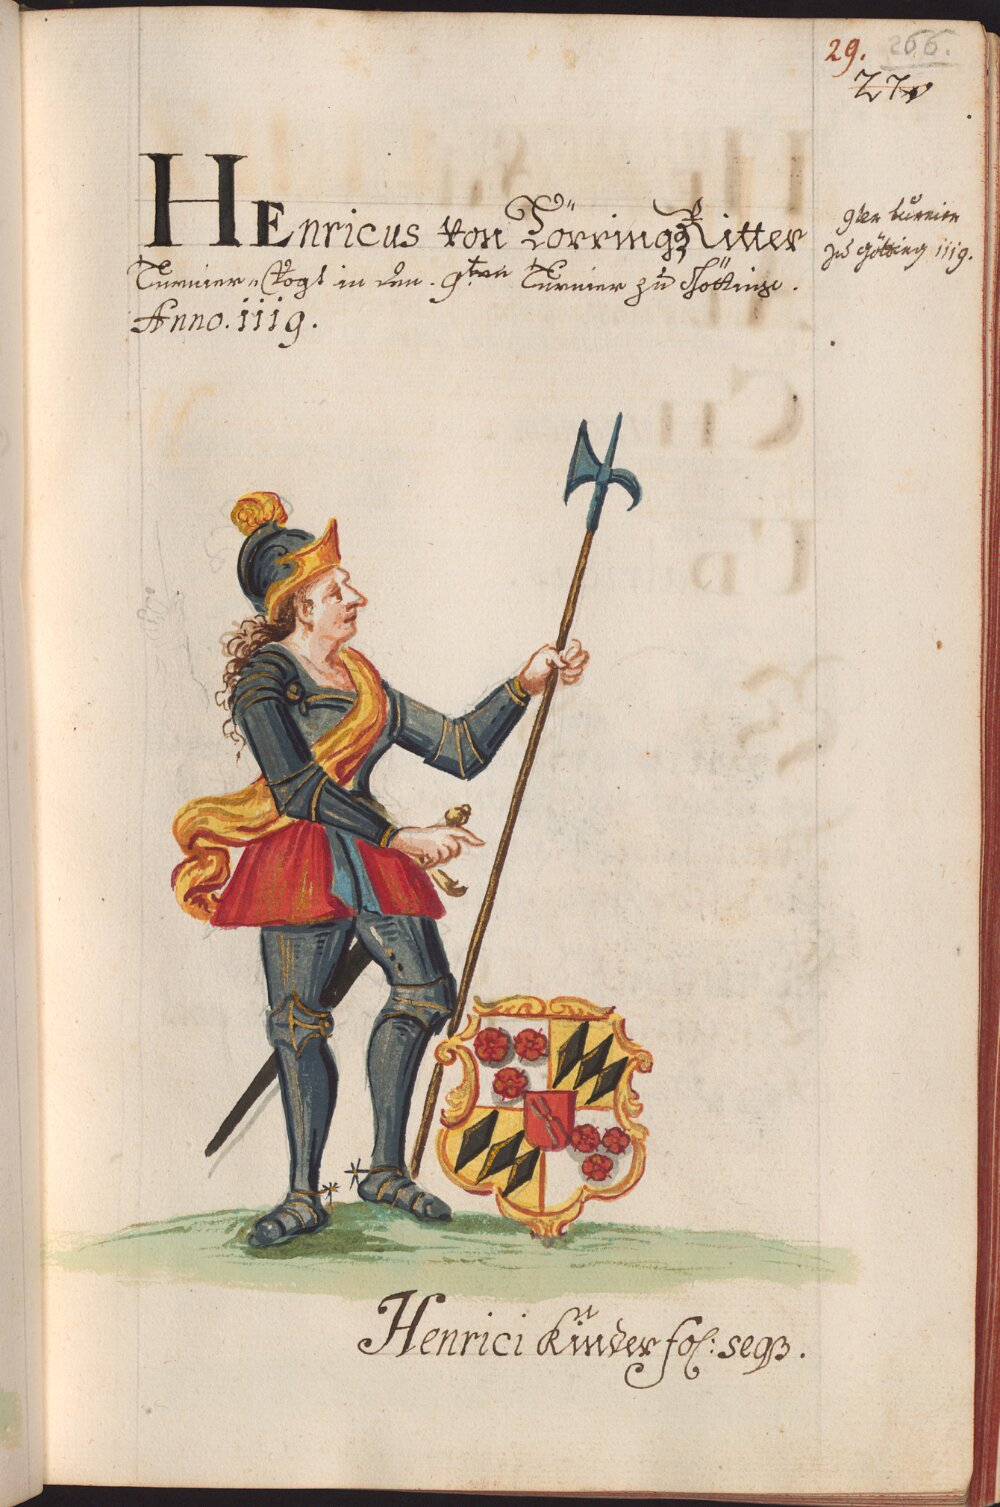 29. 266.
27
HEnricus von Törring, Ritter
Turnier-Vogt in den .9ten Turnier zu Göttinge.
Anno.1119.
9ter turnier
zu götting 1119.
Henrici Kinder fol: seq3.